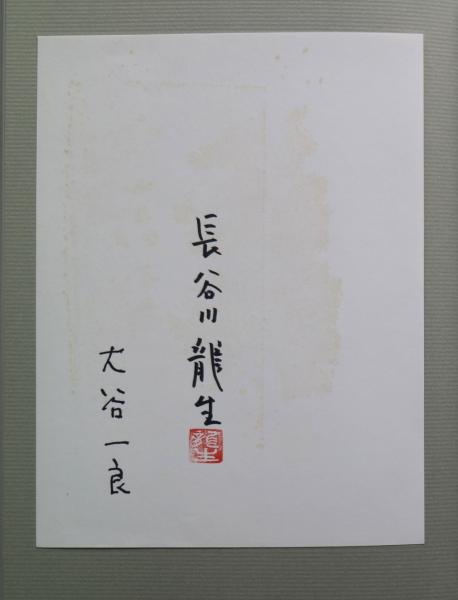 長谷川龍生
大谷一良